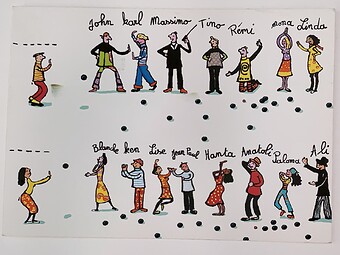 John Karl Massimo Tino Rémi Mona Linda
Blanche Ken Lise Jean Paul Hanta Anatoli Paloma Ali